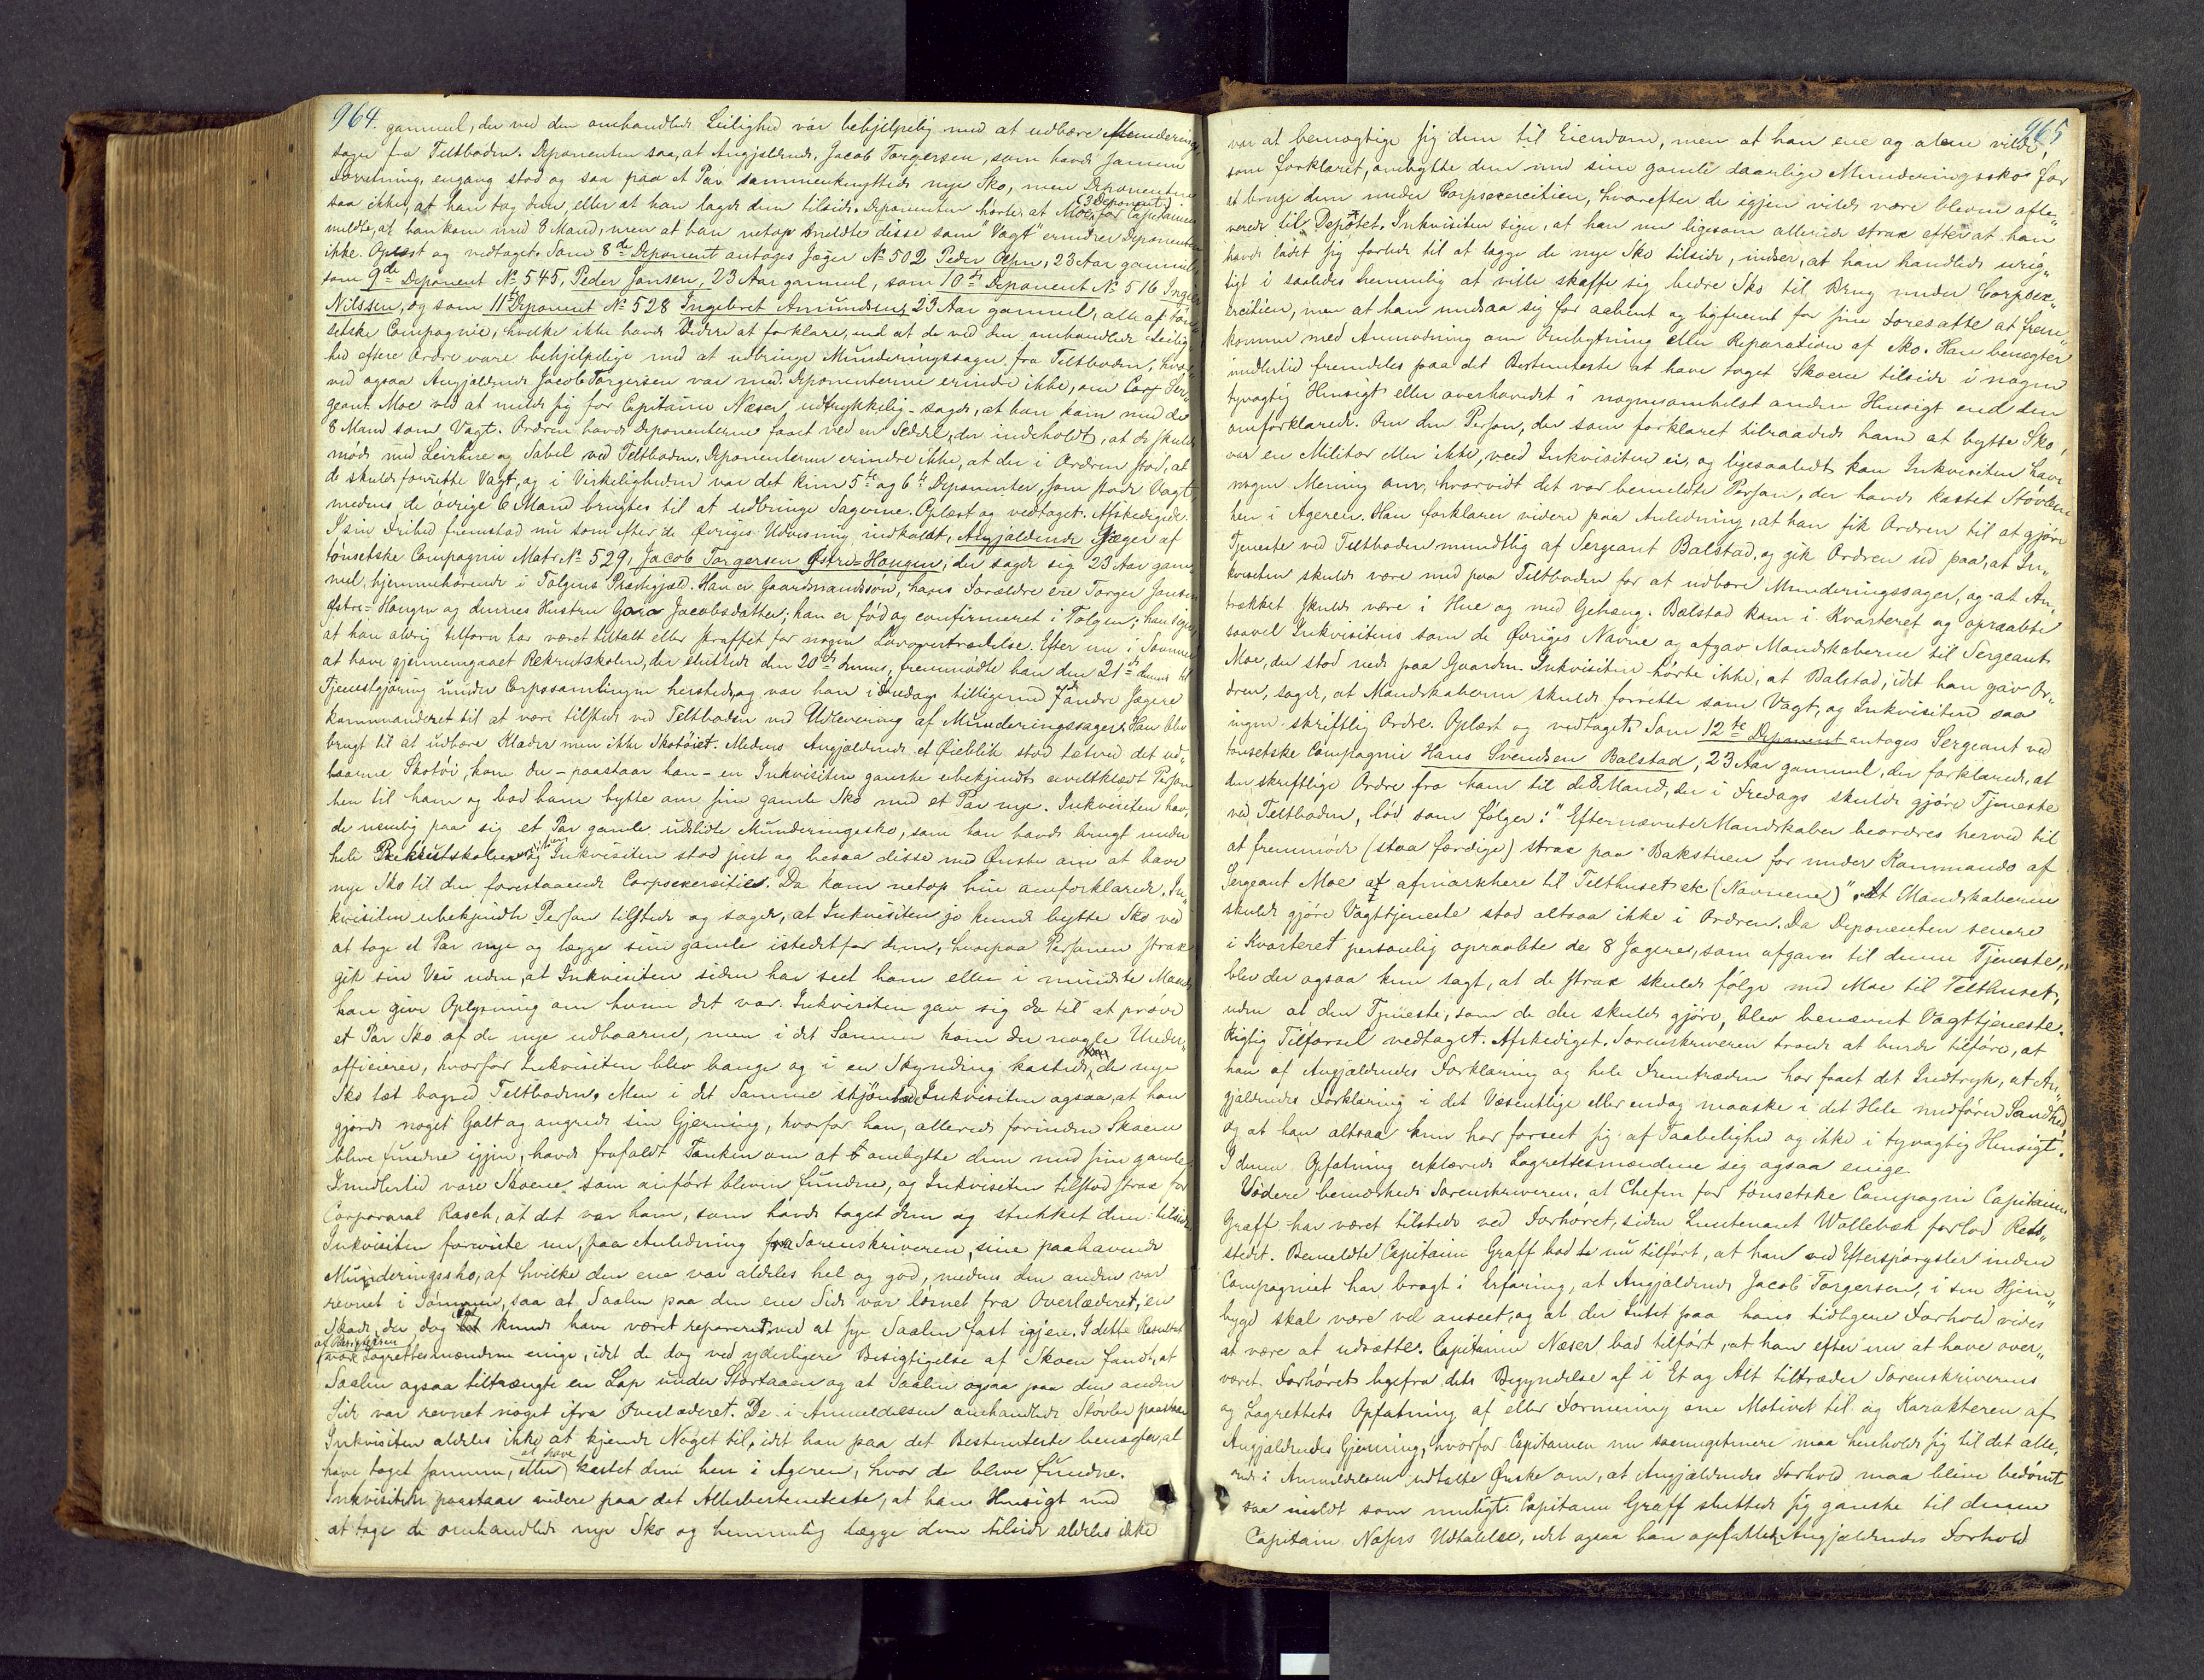 964.
gammel, der ved den omhandlede Leilighed var behjelpelig med at udbære Munderings„
sager fra Teltboden. Deponenten saa, at Angjældende, Jacob Torgersen, som havde samme
Forretning, engang stod og saa paa et Par sammenknyttede nye Sko, men Deponenten
saa ikke, at han tog dem, eller at han lagde dem tilside. Deponenten hørte, at Moe (3 Deponent) for Capitainen
meldte, at han kom med 8 Mand, men at han netop meldte disse som "Vagt" erindrer Deponenten
ikke. Oplæst og vedtaget. Som 8de Deponent antages Jæger No 502 Peder 23 Aar gammel,
som 9de Deponent No 545, Peder Jonsen, 23 Aar gammel, som 10de Deponent No 516
Nilssen, og som 11te Deponent No 528 Ingebret Amundsen, 23 Aar gammel, alle af Tøn„
setske Compagnie, hvilke ikke havde Videre at forklare, end at de ved den omhandlede Leilig„
hed efter Ordre vare behjelpelige med at udbringe Munderingssager fra Teltboden, hvor„
ved ogsaa Angjældende Jacob Torgersen var med. Deponenterne erindre ikke, om Ser„
geant Moe ved at melde sig for Capitaine Næser udtrykkelig sagde, at han kom med de
8 Mand som Vagt. Ordren havde Deponenterne faaet ved en Seddel, der indeholdt, at de skulde
møde med og Sabel ved Teltboden. Deponenterne erindre ikke, at der i Ordren stod, at
de skulde forrette Vagt, og i Virkeligheden var det kun 5te og 6te Deponenter, som stode Vagt,
medens de øvrige 6 Mand brugtes til at udbringe Sagerne. Oplæst og vedtaget. Afskedigede.
I sin Frihed fremstod nu som efter de Øvriges Udvisning indkaldt, Angjældende Jæger af
tønsetske Compagnie Matr. No 529, Jacob Torgersen Østre-Haugen, der sagde sig 23 Aar gam„
mel, hjemmehørende i Tolgens Præstegjæld. Han er Gaardmandssøn, hans Forældre ere Torger Jonsen
Østre-Haugen og dennes Hustru Jacobsdatter; han er fød og confirmeret i Tolgen; han siger,
at han aldrig tilforn har været tiltalt eller straffet for nogen Lovovertrædelse. Efter nu i Sommer
at have gjennemgaaet Rekrutskolen, der sluttede den 20de dennes, fremmødte han den 21de dennes til
Tjenestgjøring under Corpssamlingen hersteds, og var han i Fredags tilligemed 7 andre Jægere
kommanderet til at være tilstede ved Teltboden ved Udlevering af Munderingssager. Han blev
brugt til at udbære Klæder men ikke Skotøiet. Medens Angjældende et Øieblik stod tætved det ud„
baarne Skotøi, kom der – paastaar han – en Inkvisiten ganske ubekjendt, civilklædt Person
hen til ham og bad ham bytte om sine gamle Sko med et Par nye. Inkvisiten hav„
de nemlig paa sig et Par gamle udslidte Munderingssko, som han havde brugt under
hele Rekrutskolen og Inkvisiten stod just og besaa disse med Ønske om at have
nye Sko til den forestaaende Corpsexersitie. Da kom netop hin omforklarede, In„
kvisiten ubekjendte Person tilstede og sagde, at Inkvisiten jo kunde bytte Sko ved
at tage et Par nye og lægge sine gamle istedetfor dem, hvorpaa Personen strax
gik sin Vei uden, at Inkvisiten siden har seet ham eller i mindste Maade
kan give Oplysning om hvem det var. Inkvisiten gav sig da til at prøve
et Par Sko af de nye udbaarne, men i det Samme kom der nogle Under„
officierer, hvorfor Inkvisiten blev bange og i en Skynding kastede han de nye
Sko tæt bagved Teltboden. Men i det Samme skjønte Inkvisiten ogsaa, at han
gjorde noget Galt og angrede sin Gjerning, hvorfor han, allerede forinden Skoene
bleve fundne igjen, havde frafaldt Tanken om at ombytte dem med sine gamle.
Imidlertid vare Skoene som anført blevne fundne, og Inkvisiten tilstod strax for
Corporaral Rasch, at det var ham, som havde taget dem og stukket dem tilside.
Inkvisiten foreviste nu, paa Anledning fra Sorenskriveren, sine paahavende
Munderingssko, af hvilke den ene var aldeles hel og god, medens den anden var
revnet i Sømmen, saa at Saalen paa den ene Side var løsnet fra Overlæderet, en
Skade, der dog let kunde have været repareret ved at sye Saalen fast igjen. I dette Resultat
af Besigtelsen vare Lagrettesmændene enige, idet de dog ved yderligere Besigtigelse af Skoen fandt, at
Saalen ogsaa tiltrængte en Lap under Stortaaen og at Saalen ogsaa paa den anden
Side var revnet noget ifra Overlæderet. De i Anmeldelsen omhandlede Støvler paastaar
Inkvisiten aldeles ikke at kjende Noget til, idet han paa det Bestemteste benægter, at
have taget samme, eller at have kastet dem hen i Ageren, hvor de bleve fundne.
Inkvisiten paastaar videre paa det Allerbestemteste, at hans Hensigt med
at tage de omhandlede nye Sko og hemmelig lægge dem tilside aldeles ikke
965
var at bemægtige sig dem til Eiendom, men at han ene og alene vilde,
som forklaret, ombytte dem med sine gamle daarlige Munderingssko for
at bruge dem under Corpsexercitien, hvorefter de igjen vilde være blevne afle„
verede til Depotet. Inkvisiten siger, at han nu ligesom allerede strax efter at han
havde ladet sig forlede til at lægge de nye Sko tilside, indser, at han handlede urig„
tigt i saaledes hemmelig at ville skaffe sig bedre Sko til Brug under Corpsex„
ercitien, men at han undsaa sig for aabent og ligefremt for sine Foresatte at frem„
komme med Anmodning om Ombytning eller Reparation af Sko. Han benægter
imidlertid fremdeles paa det Bestemteste at have taget Skoene tilside i nogen
tyvagtig Hensigt eller overhovedet i nogensomhelst anden Hensigt end den
omforklarede. Om den Person, der som forklaret tilraadede ham at bytte Sko,
var en Militær eller ikke, veed Inkvisiten ei, og ligesaalidt kan Inkvisiten have
nogen Mening om, hvorvidt det var bemeldte Person, der havde kastet Støvlerne
hen i Ageren. Han forklarer videre paa Anledning, at han fik Ordren til at gjøre
Tjeneste ved Teltboden mundtlig af Sergeant Balstad, og gik Ordren ud paa, at In„
kvisiten skulde være med paa Teltboden for at udbære Munderingssager, og at An„
trækket skulde være i Hue og med Gehæng. Balstad kom i Kvarteret og opraabte
saavel Inkvisitens som de Øvriges Navne og afgav Mandskaberne til Sergeant
Moe, der stod nede paa Gaarden. Inkvisiten hørte ikke, at Balstad, idet han gav Or„
dren, sagde, at Mandskaberne skulde forrette som Vagt, og Inkvisiten saa
ingen skriftlig Ordre. Oplæst og vedtaget. Som 12te Deponent antages Sergeant ved
tønsetske Compagnie Hans Svendsen Balstad, 23 Aar gammel, der forklarede, at
den skriftlige Ordre fra ham til de 8 Mand, der i Fredags skulde gjøre Tjeneste
ved Teltboden, lød som følger: "Efternævnte Mandskaber beordres herved til
at fremmøde (staa færdige) strax paa Bakstuen for under Kommando af
Sergeant Moe at afmarkhere til Telthuset etc (Navnene)". At Mandskaberne
skulde gjøre Vagttjeneste stod altsaa ikke i Ordren. Da Deponenten senere
i Kvarteret personlig opraabte de 8 Jægere, som afgaves til denne Tjeneste,
blev der ogsaa kun sagt, at de strax skulde følge med Moe til Telthuset,
uden at den Tjeneste, som de der skulde gjøre, blev benævnt Vagttjeneste.
Rigtig Tilførsel vedtaget. Afskediget. Sorenskriveren troede at burde tilføre, at
han af Angjældendes Forklaring og hele Fremtræden har faaet det Indtryk, at An„
gjældendes Forklaring i det Væsentlige eller endog maaske i det Hele medfører Sandhed,
og at han altsaa kun har forseet sig af Taabelighed og ikke i tyvagtig Hensigt.
I denne Opfatning erklærede Lagrettesmændene sig ogsaa enige.
Videre bemærkede Sorenskriveren, at Chefen for tønsetske Compagnie Capitaine
Graff har været tilstede ved Forhøret, siden Lieutenant Wallebæk forlod Rets„
stedet. Bemeldte Capitaine Graff bad nu tilført, at han ved Efterspørgsler inden
Compagniet har bragt i Erfaring, at Angjældende Jacob Torgersen, i sin Hjem„
bygd skal være vel anseet, og at der Intet paa hans tidligere Forhold vides
at være at udsætte. Capitaine Næser bad tilført, at han efter nu at have over„
været Forhøret ligefra dets Begyndelse af i Et og Alt tiltræder Sorenskriverens
og Lagrettets Opfatning af eller Formening om Motivet til og Karakteren af
Angjældendes Gjerning, hvorfor Capitainen nu saameget mere maa henholde sig til det alle„
rede i Anmeldelsen udtalte Ønske om, at Angjældendes Forhold maa blive bedømt
saa mildt som muligt. Capitaine Graff sluttede sig ganske til denne
Capitain Næsers Udtalelse, idet ogsaa han opfatter Angjældendes Forhold